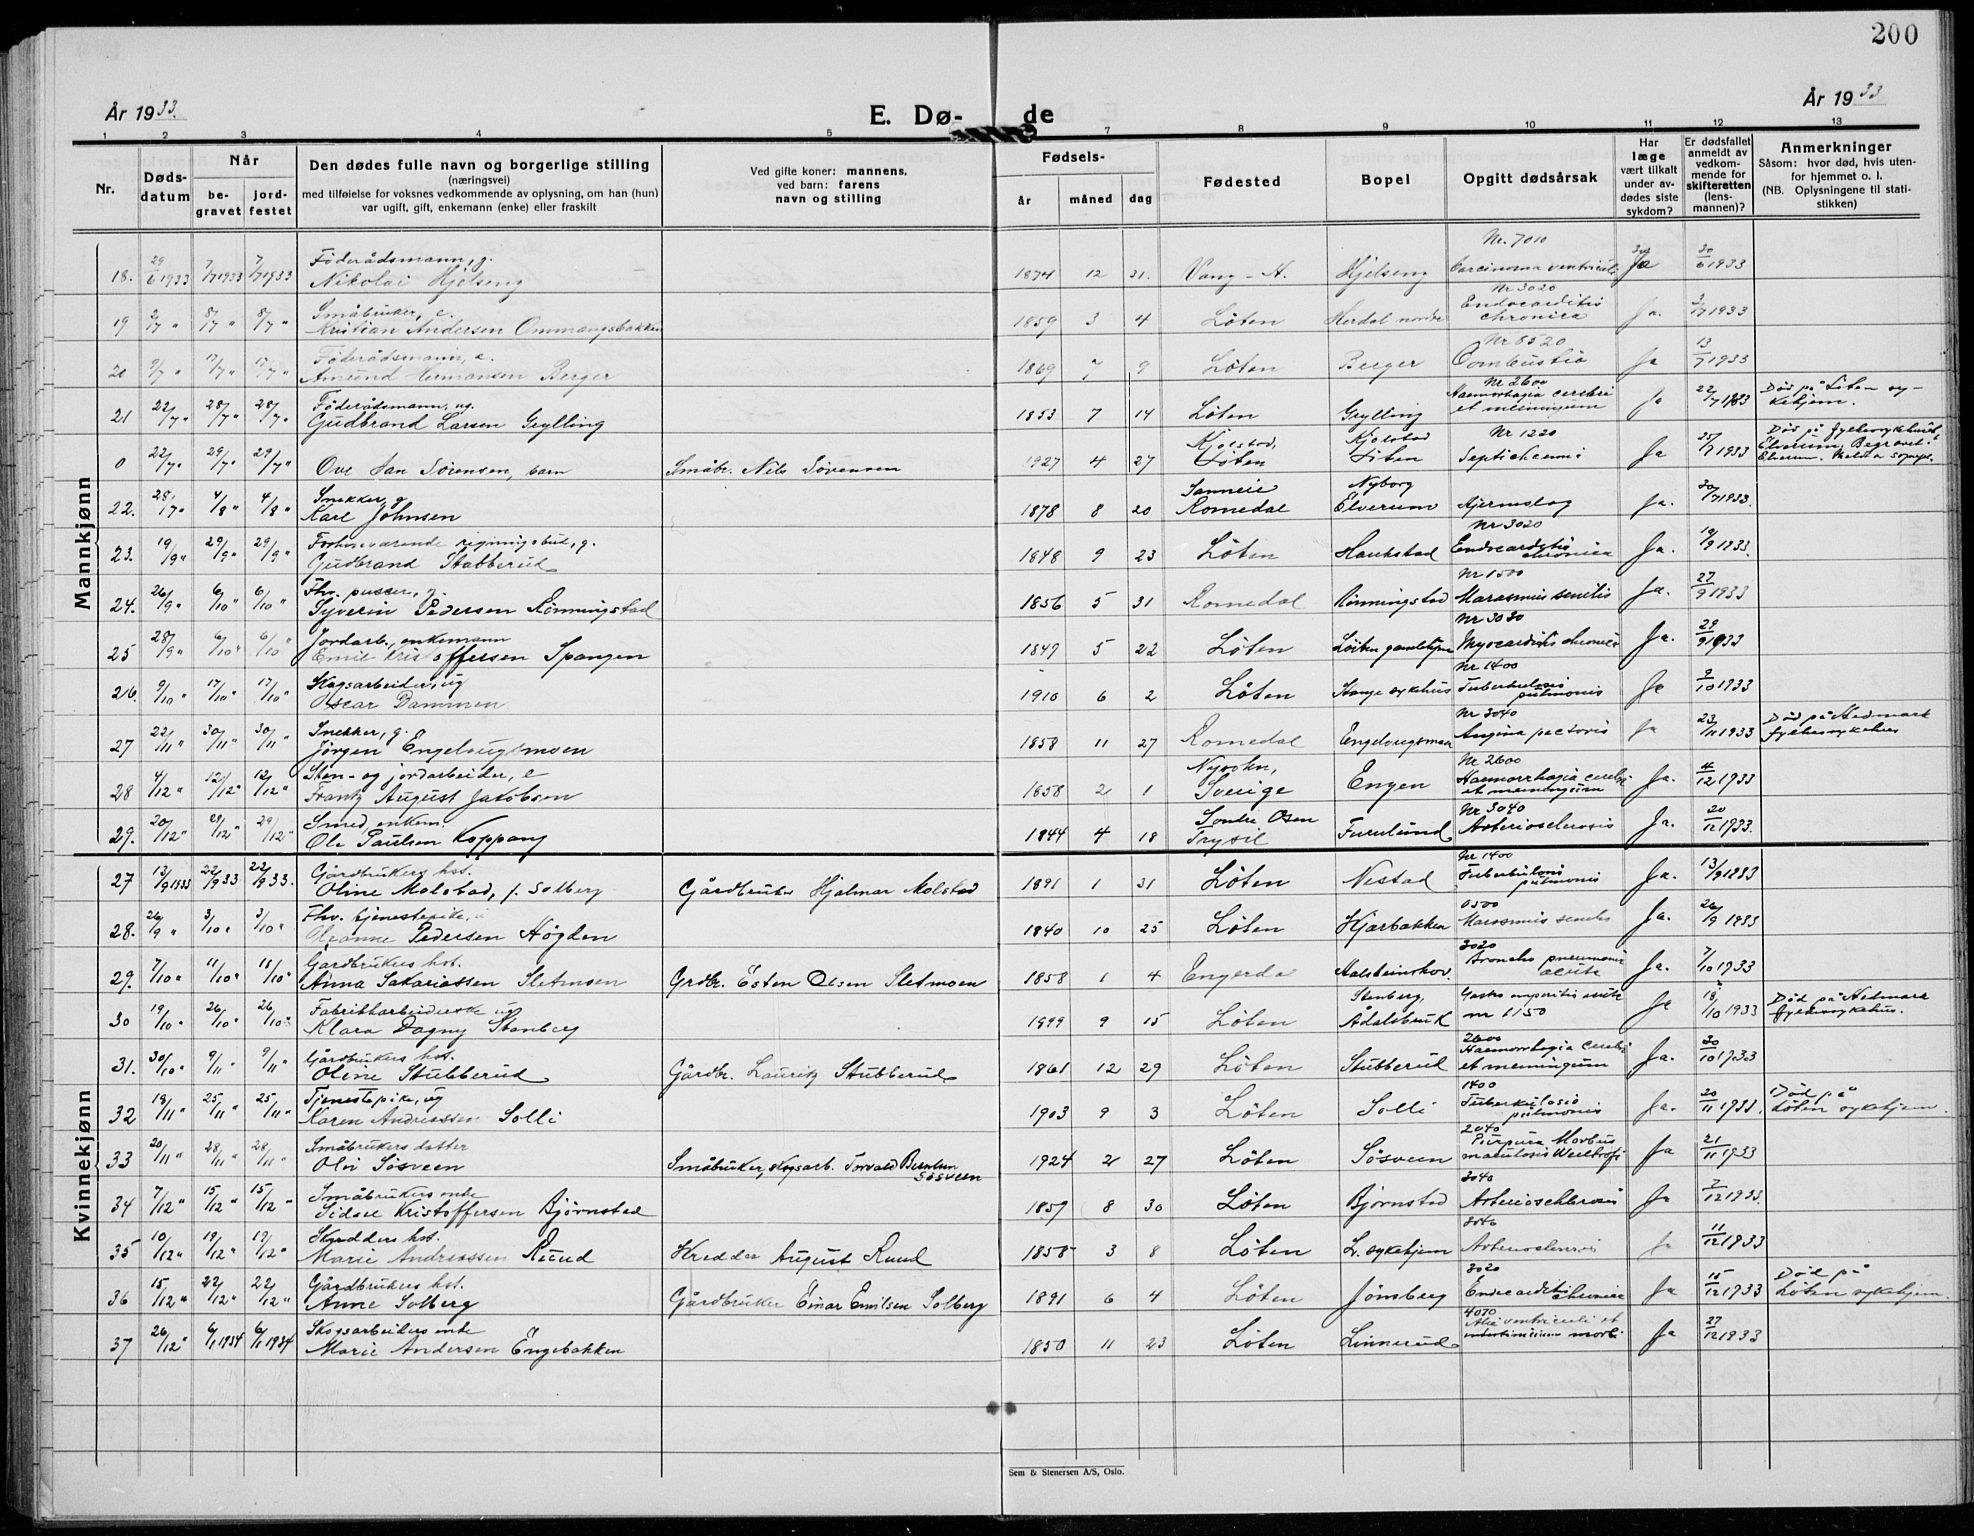 200
År 1933.
E. Dø- de
År 1933
1 2 3 4 5 7 8 9 10 11 12 13
Nr.
Døds-datum
Når
be-gravet
jord-festet
Den dødes fulle navn og borgerlige stilling
(næringsvei)
med tilføielse for voksnes vedkommende av oplysning, om han (hun)
var ugift, gift, enkemann (enke) eller fraskilt
Ved gifte koner: mannens,
ved barn: farens
navn og stilling
Fødsels-
år måned dag
Fødested
Bopel
Opgitt dødsårsak
Har læge vært tilkalt under av-dødes siste sykdom?
Er dødsfallet anmeldt av vedkom-mende for skifteretten (lens-mannen)?
Anmerkninger
Såsom: hvor død, hvis uten-
for hjemmet o. l.
(NB. Oplysningene til stati-
stikken)
Mannkjønn
Føderådsmann, g. Nr. 7010
18. 29/6 1933 7/7 1933 7/7 1933 Nikolai Hjelseng 1874 12 31. Vang - H. Hjelseng Carcinoma ventriculi Ja 30/6 1933
Småbruker, e. Nr 3020
19 2/7 " 8/7 " 8/7 " Kristian Andersen Ommangsbakken 1859 3 4 Löten Herdal nordre Endocarditis chronica Ja. 3/7 1933
Föderådsmann, e. Nr 8520
20 9/7 " 17/7 " 17/7 " Amund Hermansen Berger 1869 7 9 Löten Berger Combustio Ja 13/7 1933
Föderådsmann, ug. Nr 2600
21 22/7 " 28/7 " 28/7 " Gudbrand Larsen Grylling 1853 7 14 Löten Grylling Haemorrhagia cerebri et meningium Ja 22/7 1933 Död på Löten sy-kehjem.
0 22/7 " 29/7 " 29/7 " Ove Jan Sörensen, barn Småbr. Nils Sörensen 1927 4 27 Kjolstad, Löten Kjolstad Löten Nr 1220 Septichaemi Ja 25/7 1933 Död på fylkessykehuset Elverum. Begravet i Elverum.
Snekker, g
22. 28/7 " 4/8 " 4/8 " Karl Johnsen 1878 8 20 Romedal Nyborg Elverum Hjerneslag Ja. 30/7 1933.
g. Nr 3020
23. 19/9 " 29/9 " 29/9 " Gudbrand Stabberud 1848 9 23 Löten Haukstad Endocarditis chronica Ja. 19/9 1933.
Fhv. pusser, g. Nr 1500
24. 26/9 " 6/10 " 6/10 " Syverin Pedersen Rönningstad 1856 5 31 Romedal Rönningstad Marasmus senilis Ja. 27/9 1933
Jordarb., enkemann Nr 3030
25 28/9 " 6/10 " 6/10 " Emil Kristoffersen Spangen 1849 5 22 Löten Löiten gamlehjem Myocarditis chronica Ja. 29/9 1933
Skogsarbeider, ug Nr 1400
26. 9/10 " 17/10 " 17/10 " Oscar Dammen 1910 6 2 Löten Stange sykehus Tuberkulosis pulmonis Ja 9/10 1933
Snekker, g. Nr 3040
27 22/11 " 30/11 " 30/11 " Jörgen Engelaugsmoen 1858 11 27 Romedal Engelaugsmoen Angina pectoris Ja 23/11 1933 Död på Hedmark fylkessykehus
Sten- og jordarbeider, e Nr 2600
28 4/12 " 12/12 " 12/12 " Frantz August Jakobsen 1858 2 1 Sverige Engen Haemorrhagia cerebri et meningium Ja. 4/12 1933
Smed, enkem. Nr 3040
29. 20/12 " 29/12 " 29/12 " Ole Paulsen Koppang 1844 4 18 Söndre Osen Trysil Furulund Arteriosclerosis Ja. 20/12 1933.
Kvinnekjønn
Gårdbrukers hst. Nr 1400
27 13/9 1933 22/9 33 22/9 33. Oline Molstad, f. Solberg Gårdbruker Hjalmar Molstad 1891 1 31 Löten Nestad Tuberkulosis pulmonis Ja. 13/9 1933
Fhv. tjenestepike, 0500
28. 26/9 " 3/10 " 3/10 " Oleanne Pedersen Högden 1840 10 25 Löten Hjarbakken Marasmus senilis Ja. 26/9 1933
Gårdbrukers hst. 3020
29. 7/10 " 11/10 " 11/10 " Anna Sakariassen Sletmoen Grdbr. Esten Olsen Sletmoen 1858 1 4 Engerdal Broncho pneumonia acuta Ja. 7/10 1933
Fabrikkarbeiderske ug
30 19/10 " 26/10 " 26/10 " Klara Dagny Stenberg 1899 9 15 Löten Stenberg, Ådalsbruk nr 1150 Ja 18/10 1933 Död på Hedmark fylkessykehus.
Gårdbrukers hst. 2600
31. 30/10 " 9/11 " 9/11 " Oline Stubberud Gårdbr. Lauritz Stubberud 1861 12 29 Löten Stubberud Haemorrhagia cerebri et meningium Ja. 30/10 1933
Tjenestepike, ug 1400
32 18/11 " 25/11 " 25/11 " Karen Andreassen Solli 1903 9 3 Löten Solli Tuberkulosis pulmonis Ja. 20/11 1933. Död på Löten sykehjem.
Småbrukers datter 2040
33 20/11 " 28/11 " 28/11 " Olis Sösveen Småbruker, skogsarb. Torvald Berntsen Sösveen 1924 2 27 Löten Sösveen Purpura Morbus maculosis Werlhofi Ja 21/11 1933
Småbrukers enke 3040
34 7/12 " 15/12 " 15/12 " Sidsel Kristoffersen Björnstad 1857 8 30 Löten Björnstad Arteriosclerosis Ja 7/12 1933.
Skredders hst. 3040
35 10/12 " 19/12 " 19/12 " Marie Andreassen Ruud Skredder August Ruud 1858 3 8 Löten L. sykehjem Arteriosclerosis Ja 11/12 1933
Gårdbrukers hst. 3020
36 15/12 " 22/12 " 22/12 " Anne Solberg Gårdbruker Einar Emilsen Solberg 1891 6 4 Löten Jönsberg Endocarditis chronica Ja 15/12 1933 Död på Löten sykehjem.
Skogsarbeiders enke 4070
37 26/12 " 6/1 1934 6/1 1934 Marie Andersen Engebakken 1850 11 23 Löten Linnerud ventriculi et Ja 27/12 1933
Sem & Stenersen A/S, Oslo.